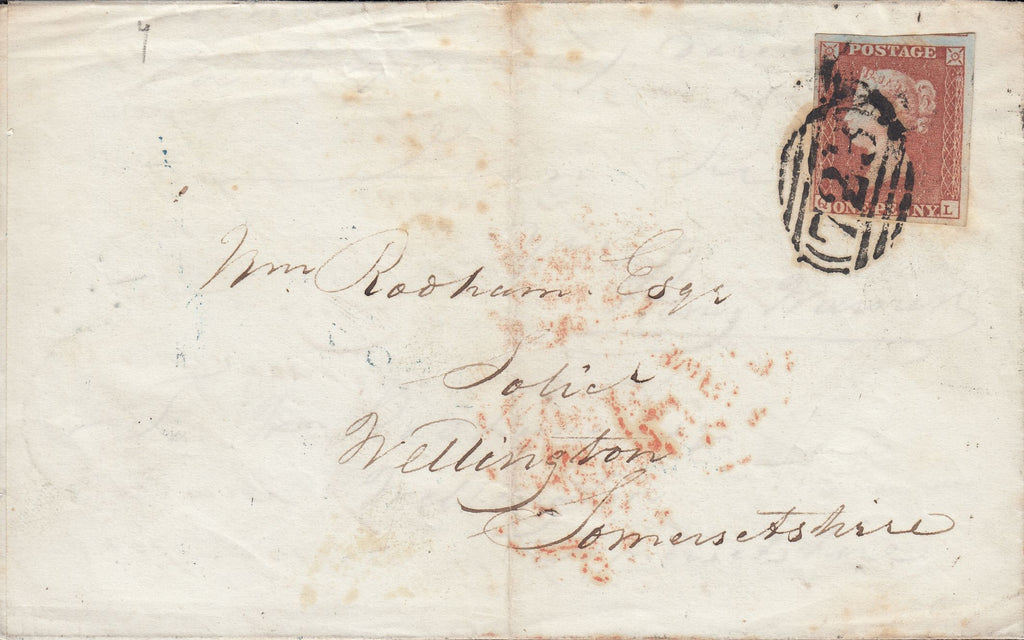 POSTAGE
723
ONE PENNY L
Wm Rodham Esqr
Solicr
Wellington
Somersetshire